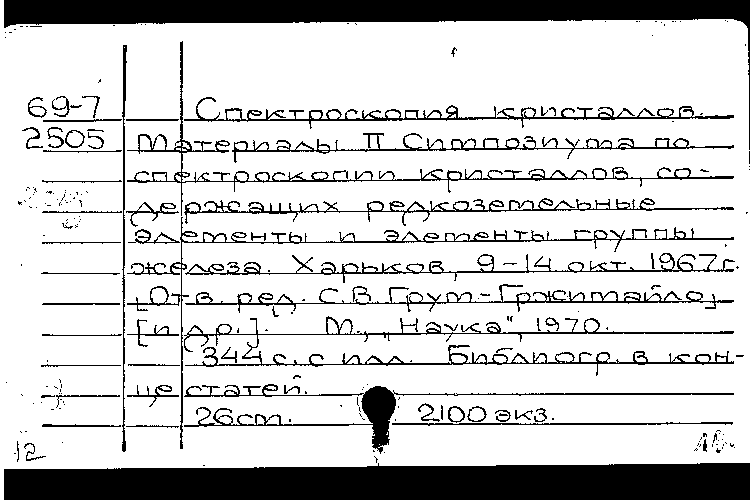 69-7 Спектроскопия кристаллов.
2505 Материалы II Симпозиума по
спектроскопии кристаллов, со-
держащих редкоземельные
элементы и элементы группы
железа. Харьков, 9-14 окт. 1967г.
[Отв. ред. С.В. Грум-Гржимайло]
[и др.]. М., "Наука", 1970.
344 с. с илл. Библиогр. в кон-
це статей.
26 см. 2100 экз.
12